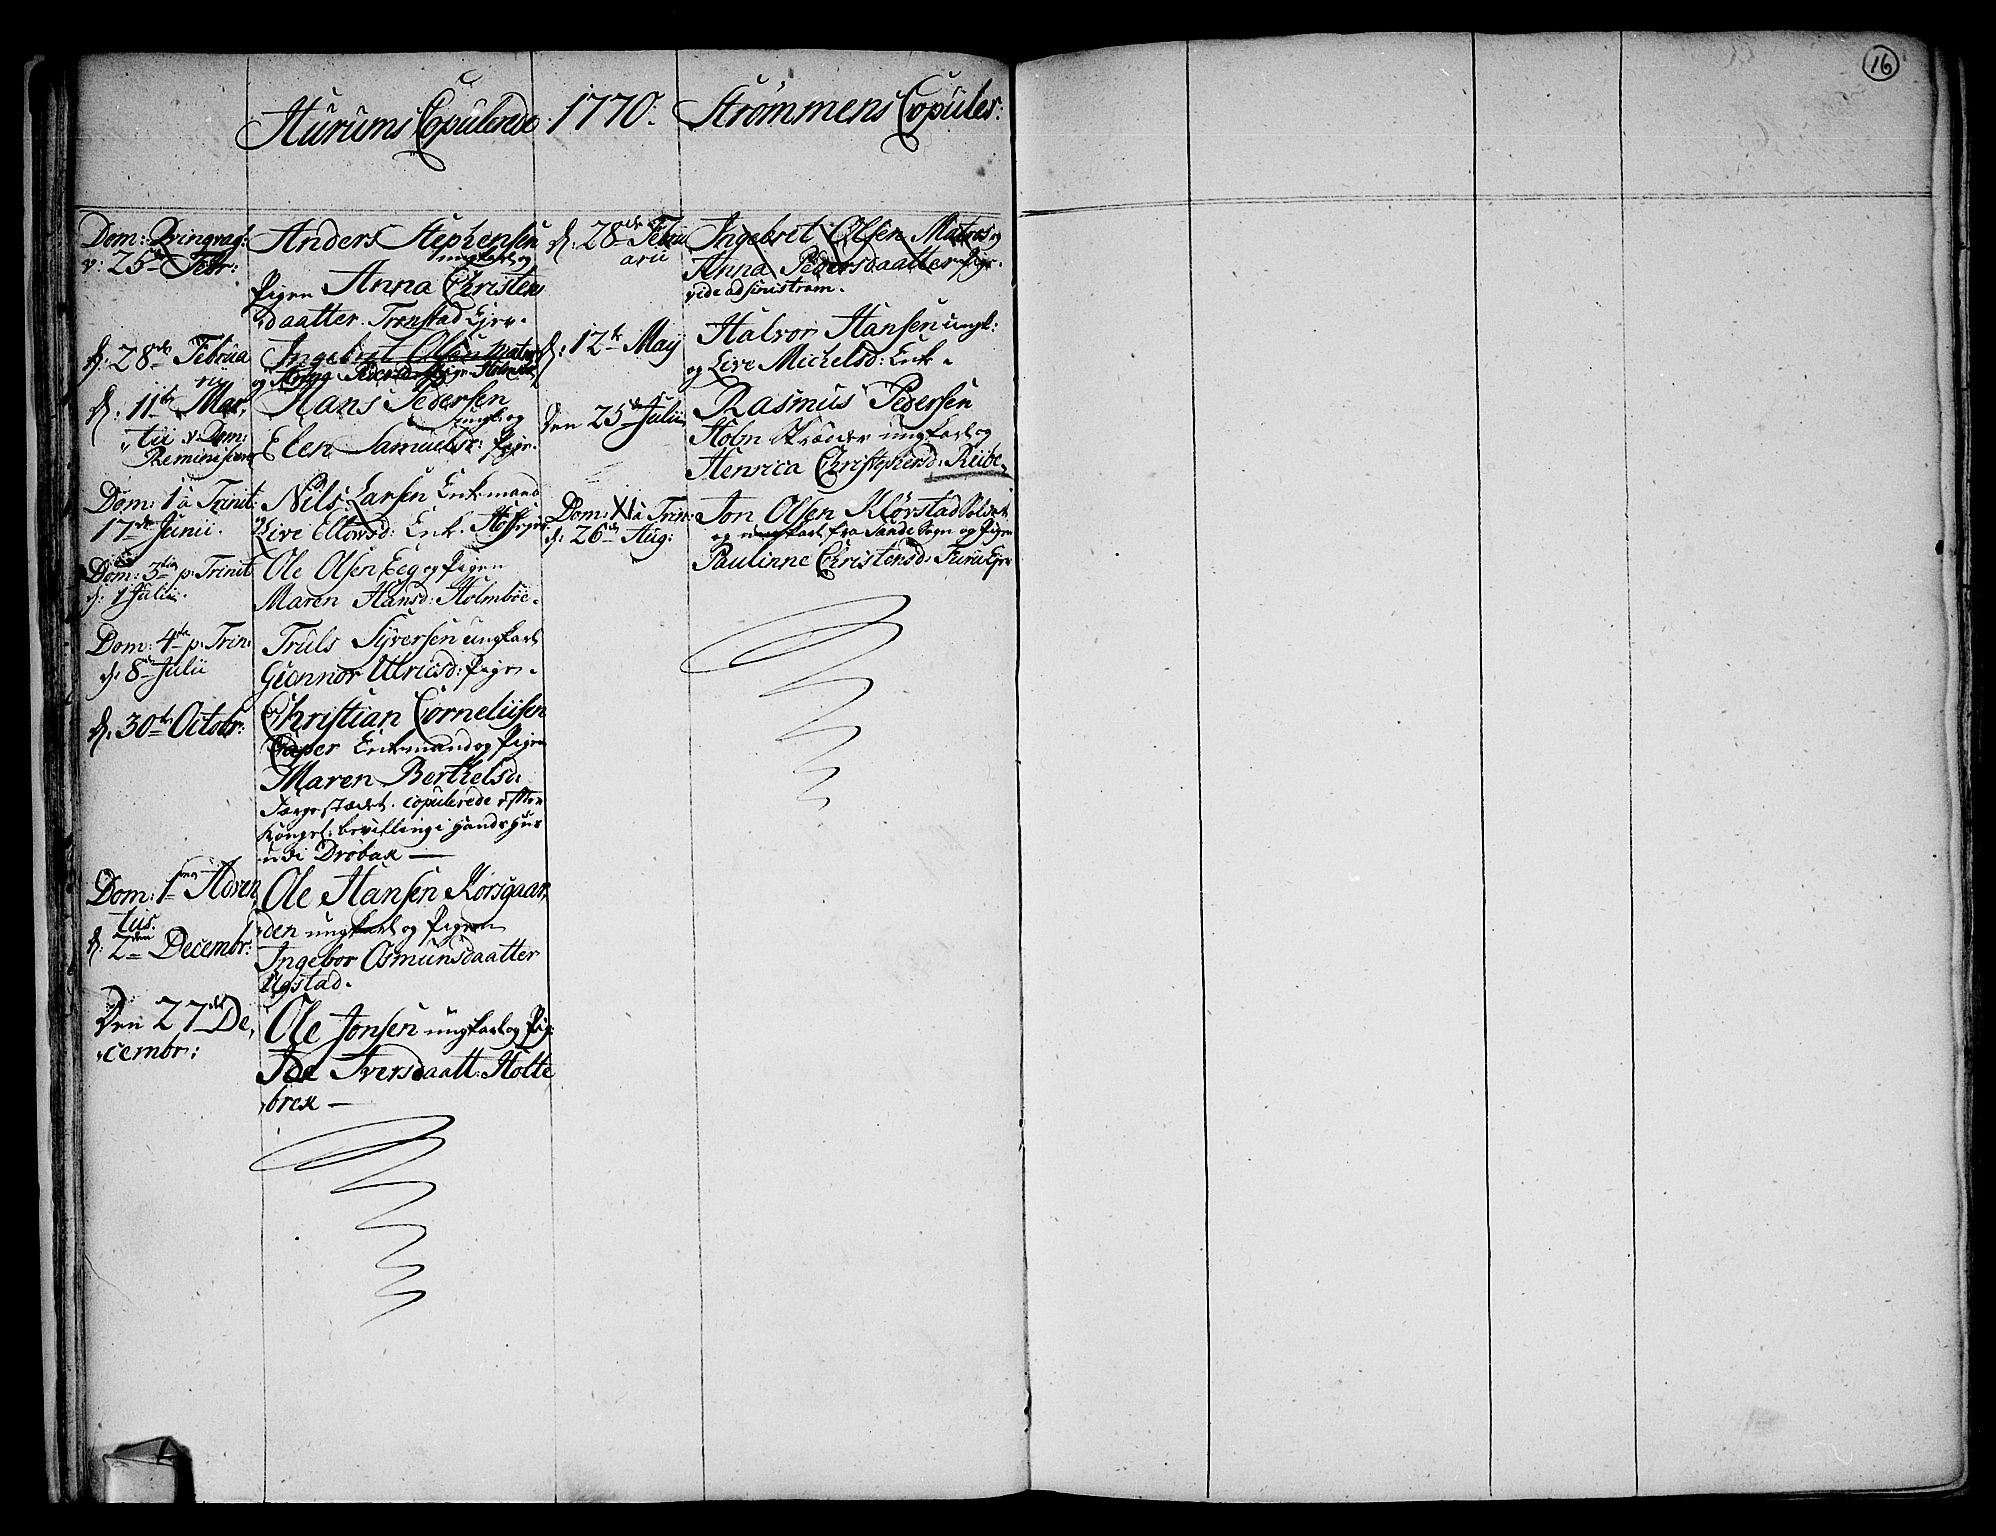 16
Hurums Copulerede 1770. Strømmens Copuler:
Dom: Qvinqvag:
d: 25de Febr:
Anders Stephensen
ungkarl og
Pigen Anna Christens
daatter Tronstad Ejer.
d: 28de Februa
rii
Ingebret Olsen Matros
og Anna Pedersd: Pige Holmsbo
d: 11te Mar,
tii v: Dom:
Reminiscere
Hans Pedersen
ungk: og
Elen Samuelsd: Pige.
Dom: 1 a Trinit:
17de Junii.
Nils Larsen Enkemand
og Live Ellovsd: Enke.
Dom: 3tia p: Trinit
d: 1 Julii.
Ole Olsen Eeg og Pigen
Maren Hansd: Holmboe.
Dom: 4ta p: Trin:
d: 8de Julii
Truls Syversen ungkarl
Gunnor Ulricsd: Pige.
d: 30te Octobr:
Christian Corneliisen
Enkemand og Pigen
Maren Berthelsd:
copulerede efter
Kongel: bevilling i hands huus
udi Drøbak —
Dom: 1ma Adven
tus.
d: 2den Decembr:
Ole Hansen Korsgaar,
den ungkarl og Pigen
Ingebor Osmunsdaatter
Ugstad.
Den 27de De,
cembr:
Ole Jonsen ungkarl og Pig:
Ide Iversdaatt: Holte
brek —
d: 28de Febru
arii
Ingebret Olsen Matros og
Anna Pedersdaatter Pige.
vide ad sinistram.
d: 12te Maij
Halvor Hansen ungk:
og Live Michelsd: Enke.
Den 25de Julii
Rasmus Pedersen
Holm Skræder ungkarl og
Henrica Christophersd: Riibe.
Dom: XI a Trin:
d: 26de Aug:
Jon Olsen Klørstad Soldat
og ungkarl fra Sande Sogn og Pigen
Paulinne Christensd: Furu Ejer